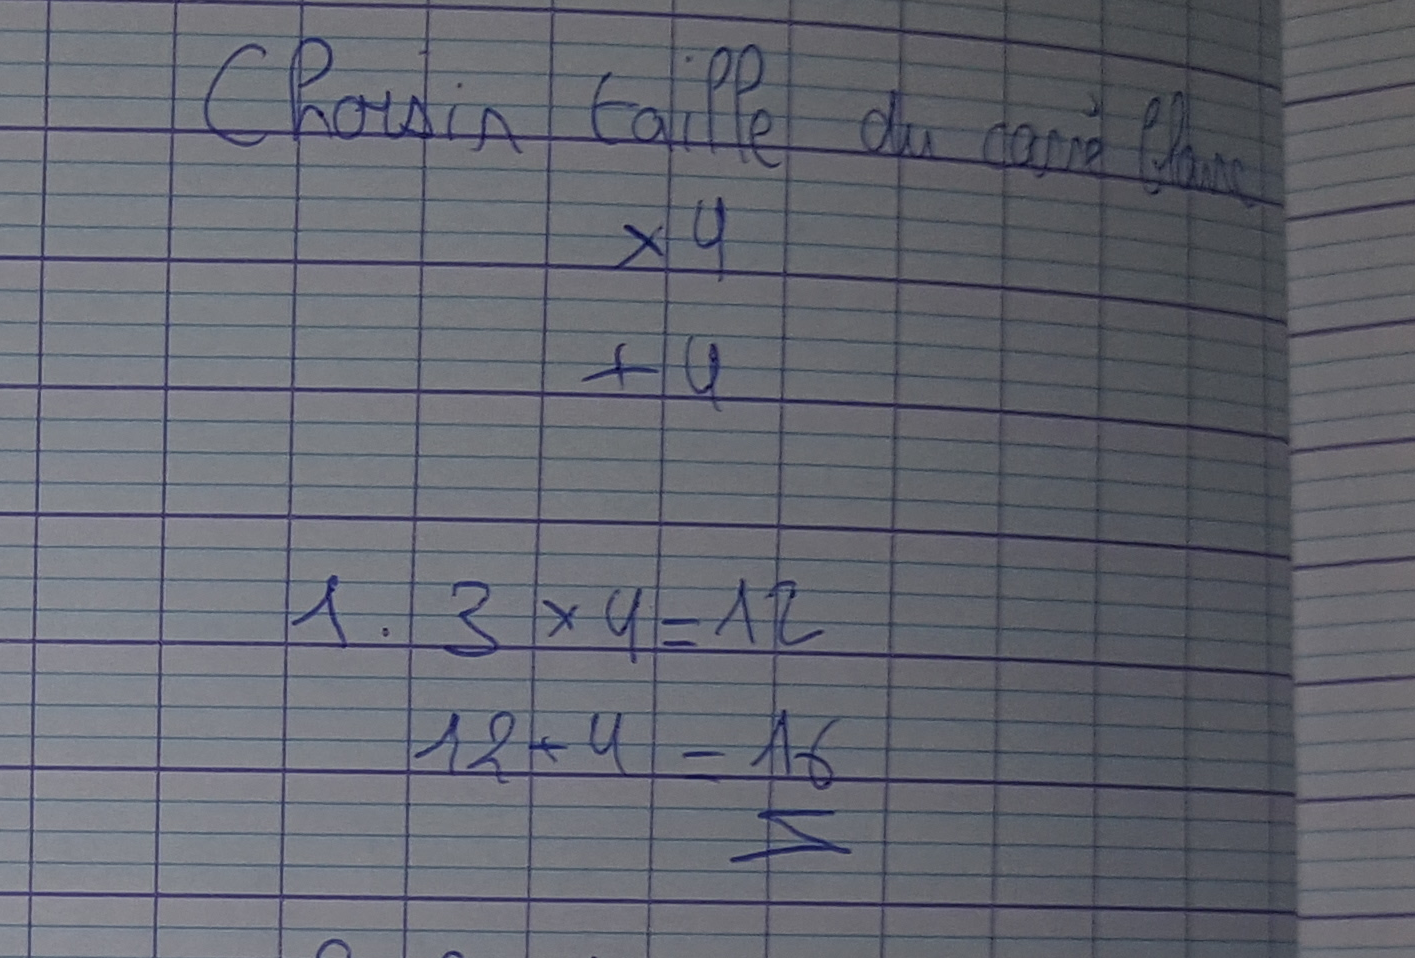 Choisir taille du carré blanc
× 4
+ 4
1. 3 × 4 = 12
12 + 4 = 16